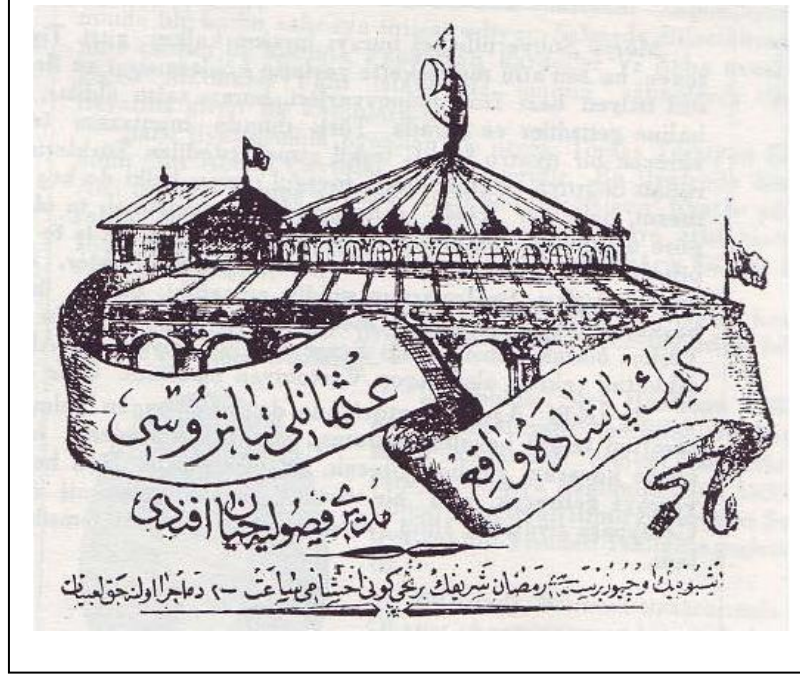 كديك پاشاده واقع
عثمانلى تياتروسى
مديرى فصوليه‌جيان افندى
رمضان شريفك برنجى كونى اخشامى ساعت ٢٠ ده اجرا اولنه‌جق لعبياتك